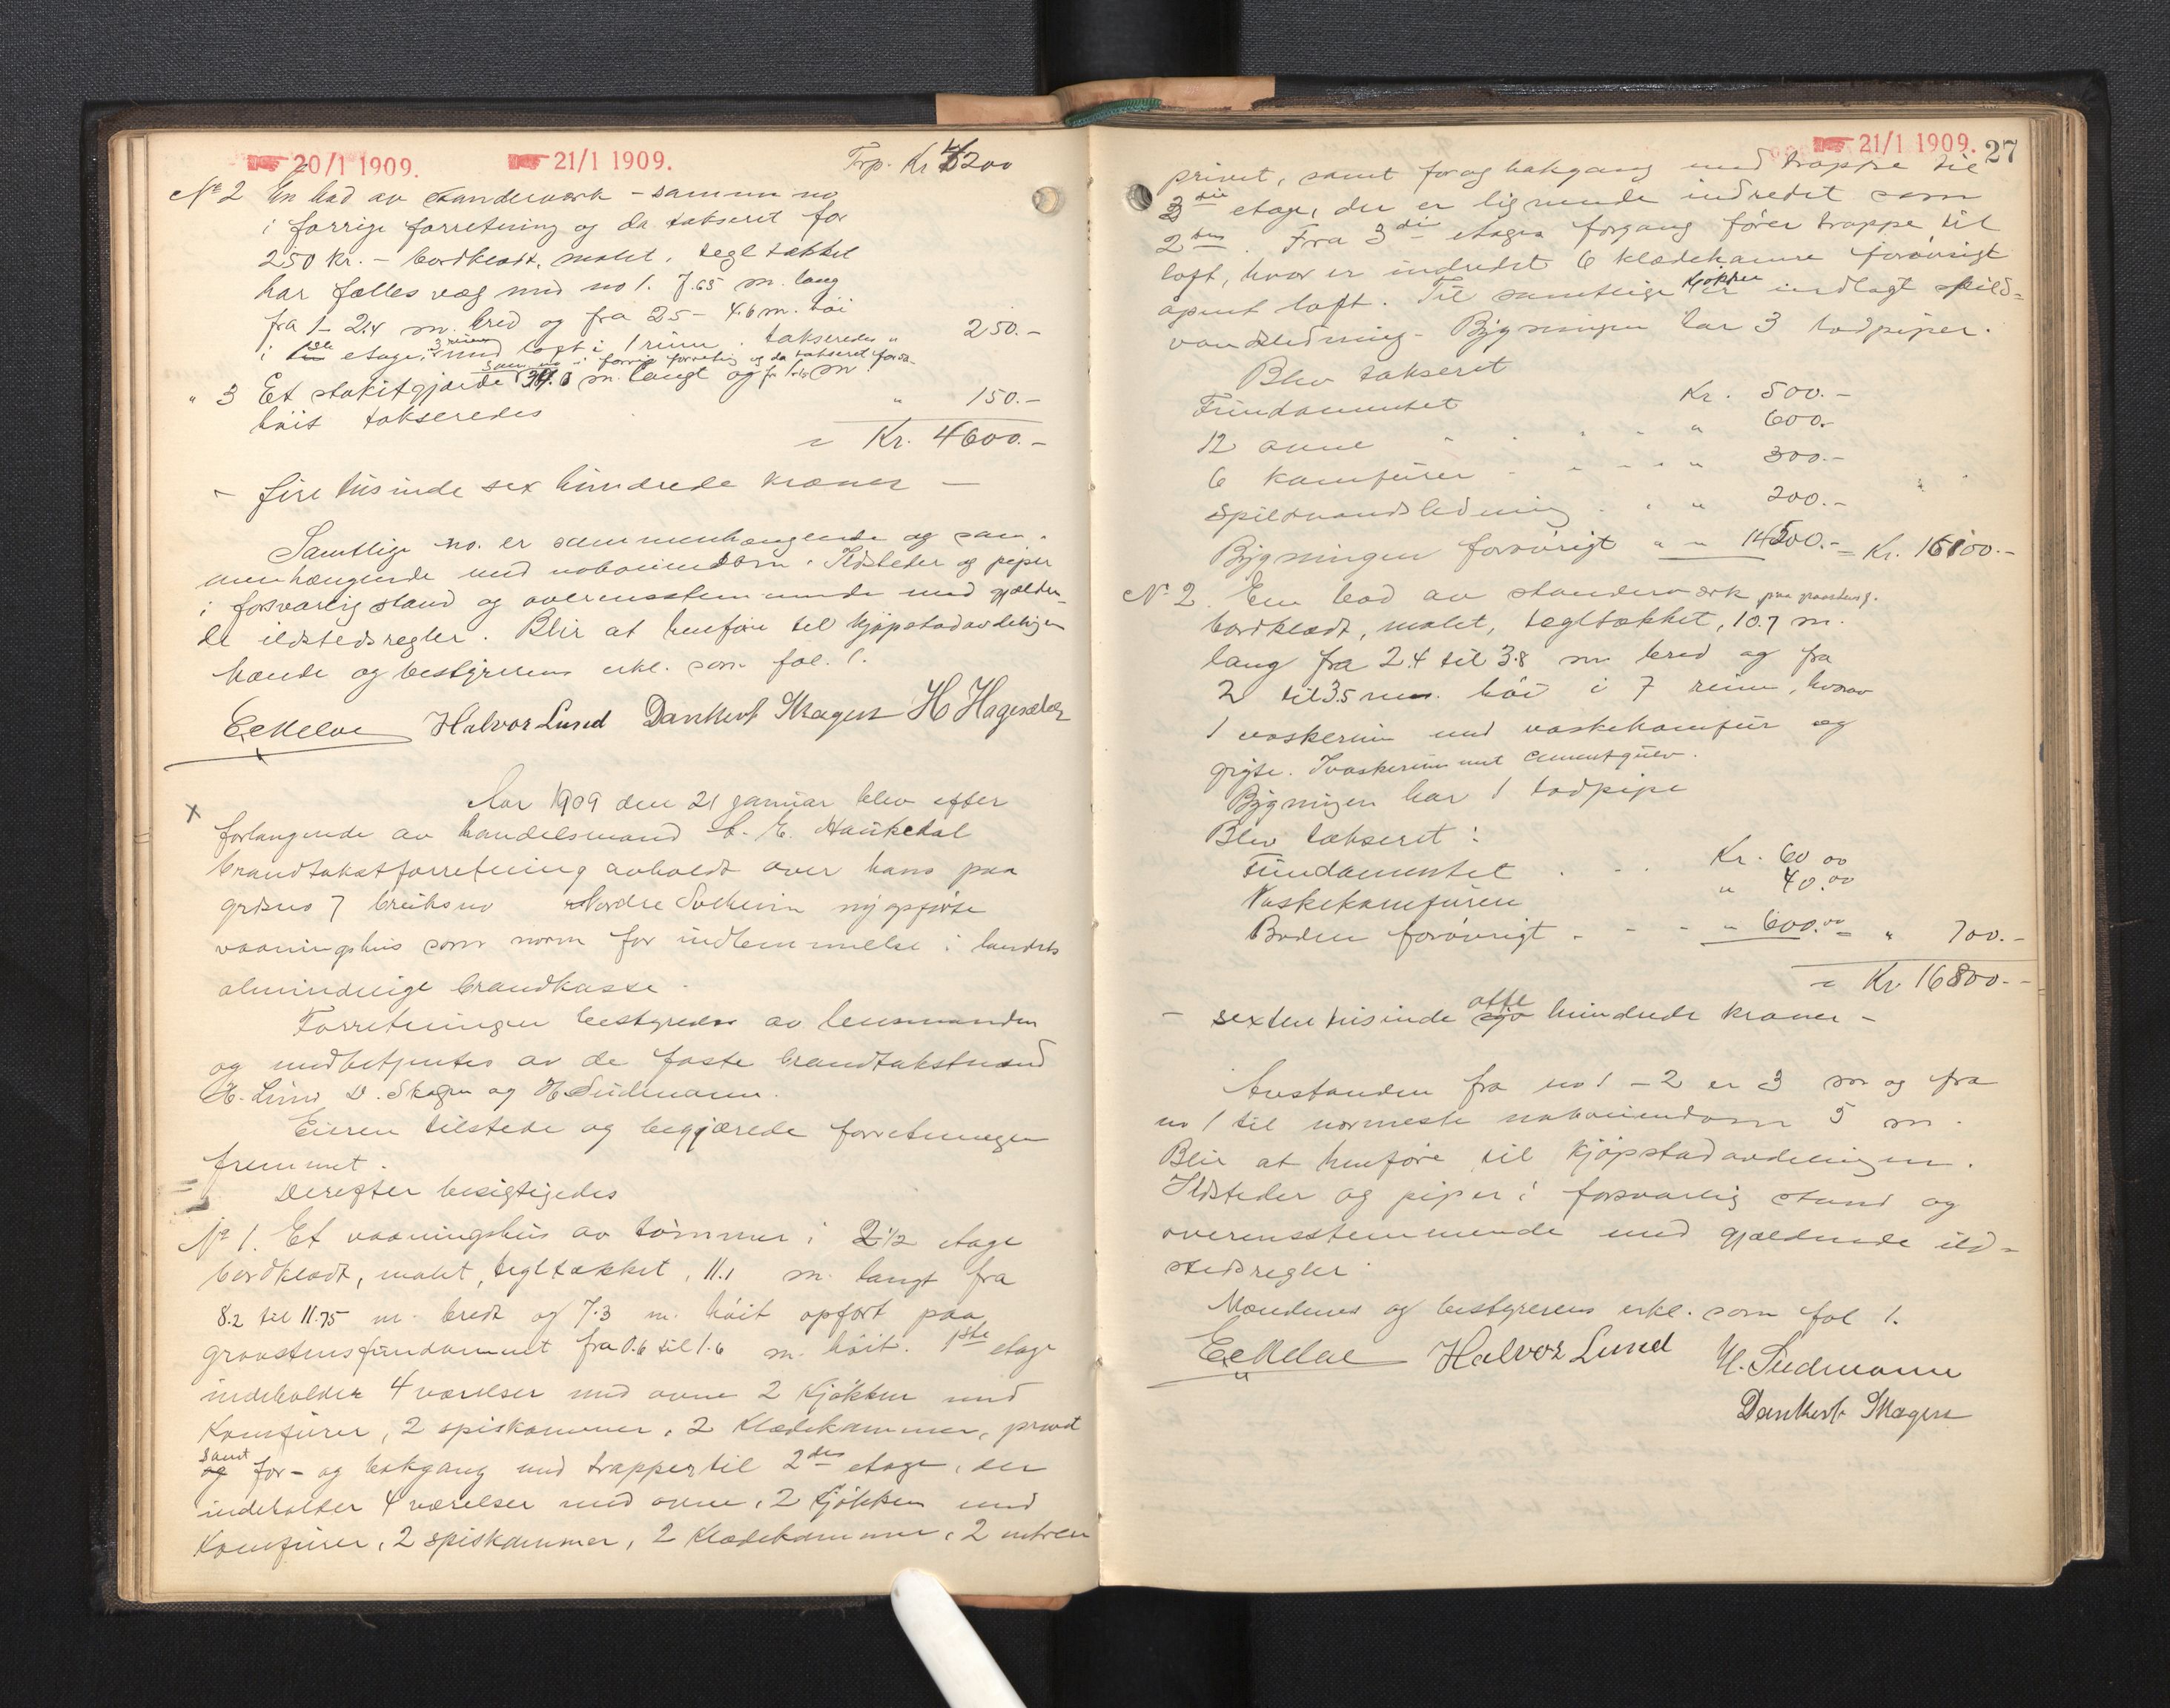 20/1 1909. 21/1 1909. Trp. Kr 4200
No 2 En bod av standerverk - samme no
i forrige forretning og da takseret for
250 kr. - bordklædt, malet, tegltækket
har fælles væg med no 1. 7.65 m. lang
fra 1 - 2.4 m. bred og fra 2.5 - 4.6 m. høi
i etage, 3 rum med loft i 1 rum. takseredes " 250.-
samme no i forrige forretning og da takseret for
" 3 Et stakitgjærde m. langt og fra m
høit takseredes " 150.-
= Kr. 4600.-
- fire tusinde sex hundrede kroner -
Samtlige no. er sammenhængende og sam-
menhængende med naboeiendom. Ildsteder og piper
i forsvarlig stand og overensstemmende med gjælden-
de ildstedsregler. Blir at henføre til kjøpstadavdelingen
Mænds og bestyrerens erkl. som fol. 1.
Halvor Lund Dankert Skagen H Hagesæter
x Aar 1909 den 21 januar blev efter
forlangende av handelsmand E. Haukedal
brandtakstforretning avholdt over hans paa
grdsno 7 bruksno Nordre nyopførte
vaaningshus som norm for indlemmelse i landets
almindelige brandkasse.
Forretningen bestyredes av lensmanden
og medbetjentes av de faste brandtakstmænd
H. Lund D. Skagen og H Sudmann.
Eieren tilstede og begjærede forretningen
fremmet.
Derefter besigtigedes
No 1. Et vaaningshus av tømmer i 2 1/2 etage
bordklædt, malet, tegltækket, 11.1 m. langt fra
8.2 til 11.75 m. bredt og 7.3 m. høit opført paa
graastensfundament fra 0.6 til 1.6 m. høit. 1ste etage
indeholder 4 værelser med ovne 2 kjøkken med
Komfurer, 2 spiskammer, 2 klædekammer, privet
samt
og for- og bakgang med trapper til 2den etage, der
indeholder 4 værelser med ovne, 2 kjøkken med
Komfurer, 2 spiskammer, 2 klædekammer, 2 entreer
21/1 1909. 27
privet, samt for og bakgang med trappe til
3die etage, der er lignende indredet som
2den. Fra 3die etages forgang fører trappe til
loft, hvor er indredet 6 klædekamre forøvrigt
kjøkken
apent loft. Til samtlige er indlagt spild-
vandsledning. Bygningen har 3 lodpiper.
Blev takseret
Fundamentet Kr. 500.-
12 ovne " 600.-
6 Kamfurer " 300.-
Spildvandsledning " 200.-
Bygningen forøvrigt " " 14500.- = Kr. 16100.-
No 2. En bod av standerverk paa graastensf.
bordklædt, malet, tegltækket, 10.7 m.
lang fra 2.4 til 3.8 m bred og fra
2 til 3.5 m. høi i 7 rum, hvorav
1 vaskerum med vaskekamfur og
gryte. I vaskerummet cementgulv.
Bygningen har 1 lodpipe
Blev takseret:
Fundamentet Kr. 60 00
Vaskekamfuren " 40.00
Boden forøvrigt " 600.00 = " 700.-
= Kr. 16800.-
otte
- sexten tusinde syv hundrede kroner -
Avstanden fra no 1 - 2 er 3 m og fra
no 1 til nærmeste naboeiendom 5 m.
Blir at henføre til kjøpstadavdelingen.
Ildsteder og piper i forsvarlig stand og
overensstemmende med gjældende ild-
stedsregler.
Mændenes og bestyrerens erkl. som fol 1.
Halvor Lund H. Sudmann
Dankert Skagen